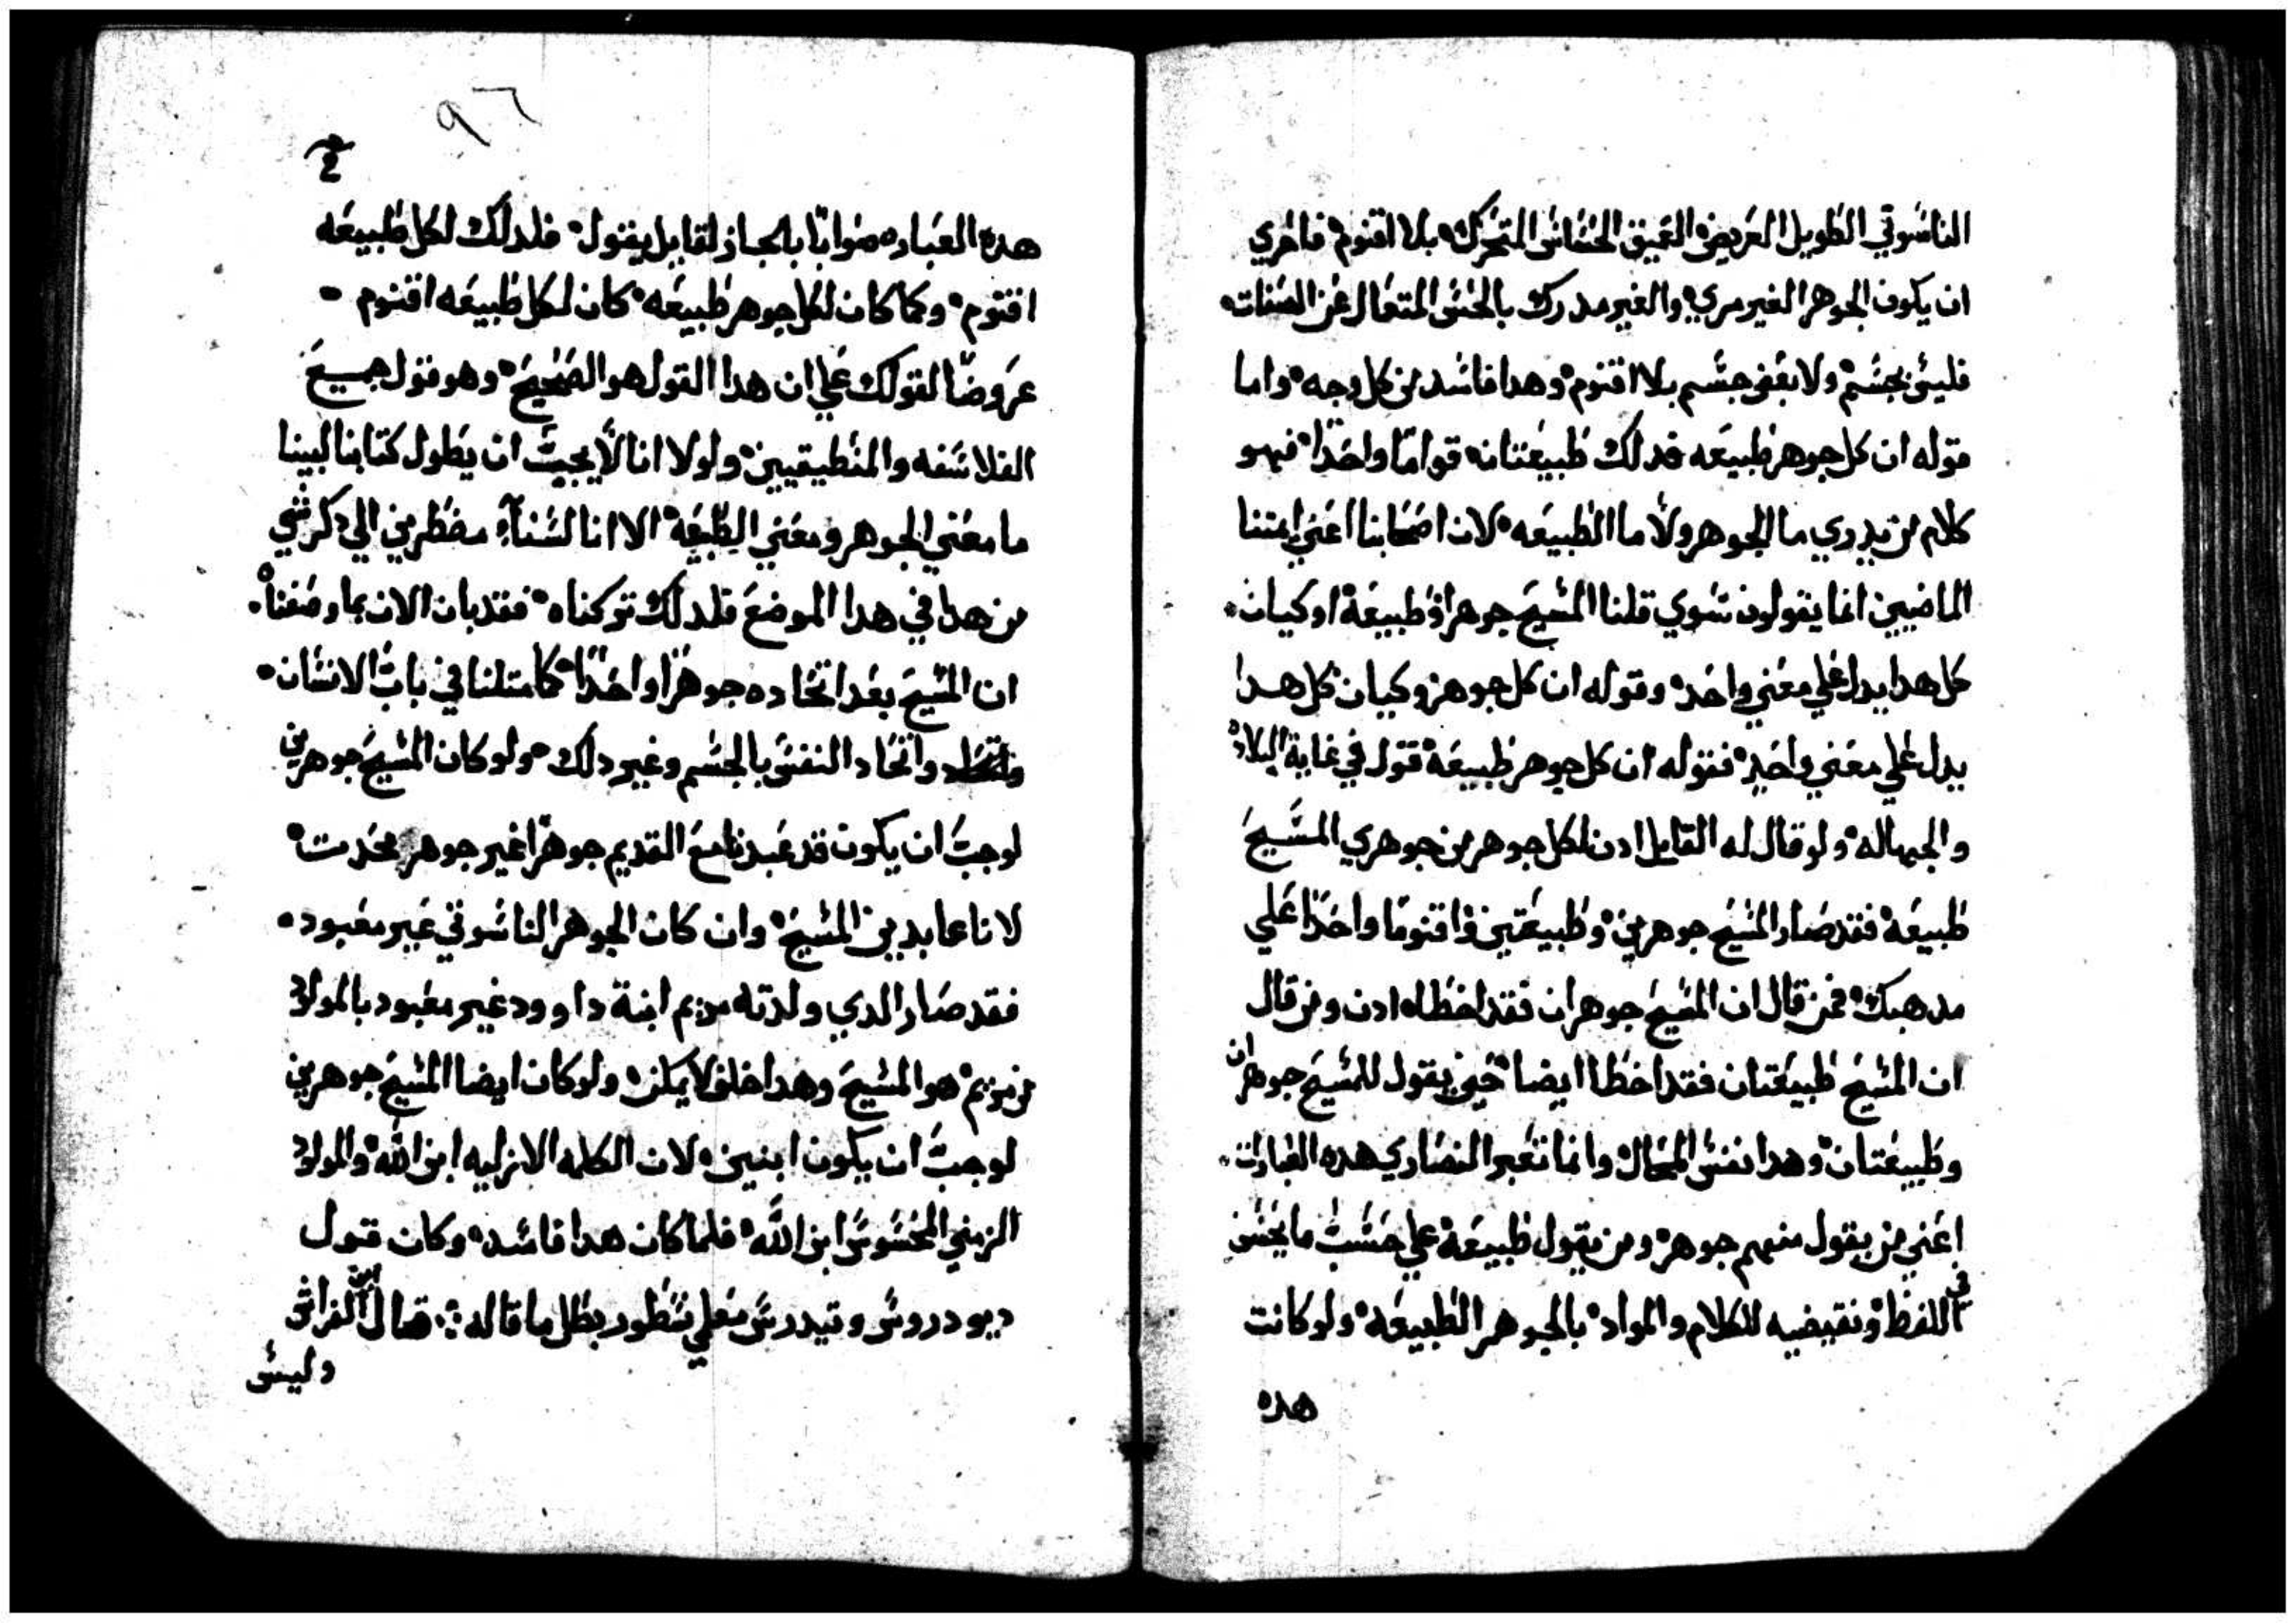 الناسوتي الطويل العريض العميق الحساس المتحرك بلا اقنوم فاحري
ان يكون الجوهر الغير مري والغير مدرك بالحس المتعال عن الصفات
فليس بجسم ولا بعض جسم بلا اقنوم وهدا فاسد من كل وجه واما
قوله ان كل جوهر طبيعه فدلك طبيعتانه قواما واحدا فهو
كلام من يدري ما الجوهر ولا ما الطبيعه لان اصحابنا اعني ايمتنا
الماضيين انما يقولون سوي قلنا المسيح جوهرا وطبيعة او كيان
كل هدا يدل علي معني واحد وقوله ان كل جوهر وكيان كل هدا
يدل علي معني واحد فقوله ان كل جوهر طبيعة قول في غاية البلاد
والجهاله ولو قال له القايل ادن لكل جوهر من جوهري المسيح
طبيعة فقد صار المسيح جوهرين وطبيعتين واقنوما واحدا علي
مدهبك فمن قال ان المسيح جوهران فقد اخطا ادن ومن قال
ان المسيح طبيعتان فقد اخطا ايضا حين يقول للمسيح جوهران
وطبيعتان وهدا نفس المحال وانما تعبر النصاري هده العبارات
اعني من يقول منهم جوهر ومن يقول طبيعة علي حسب ما يحسن
في اللفظ ونقيضيه للكلام والمواد بالجوهر الطبيعة ولو كانت
هده
٩٦
هده العباره صوابا بالجاز لقايل يقول فلدلك لكل طبيعه
اقنوم وكما كان لكل جوهر طبيعه كان لكل طبيعه اقنوم
عروضا لقولك علي ان هدا القول هو الصحيح وهو قول جميع
الفلاسفه والمنطيقيين ولولا انا لا يجيب ان يطول كتابنا لبينا
ما معني الجوهر ومعني الطبيعة الا انا لسنا مضطرين الي دكر شي
من هدا في هدا الموضع فلدلك تركناه فقد بان الان بما وصفنا
ان المسيح بعد اتحاده جوهرا واحدا كما متلنا في باب الانسان
واتحاد النفس بالجسم وغير دلك ولو كان المسيح جوهرين
لوجب ان يكون قد عبدنا مع القديم جوهرا غير جوهر محدت
لانا عابدين المسيح وان كان الجوهر الناسوتي غير معبود
فقد صار الدي ولدته مريم ابنة داوود غير معبود بالمولود
من مريم هو المسيح وهدا خلف لا يمكن ولو كان ايضا المسيح جوهرين
لوجب ان يكون ابنين لان الكلمه الازليه ابن الله والمولود
الزمني المحسوس ابن الله فلما كان هدا فاسد وكان قول
ديودروس وتيدرس معلمي نسطور بطل ما قاله قال ابن الفراش
وليس